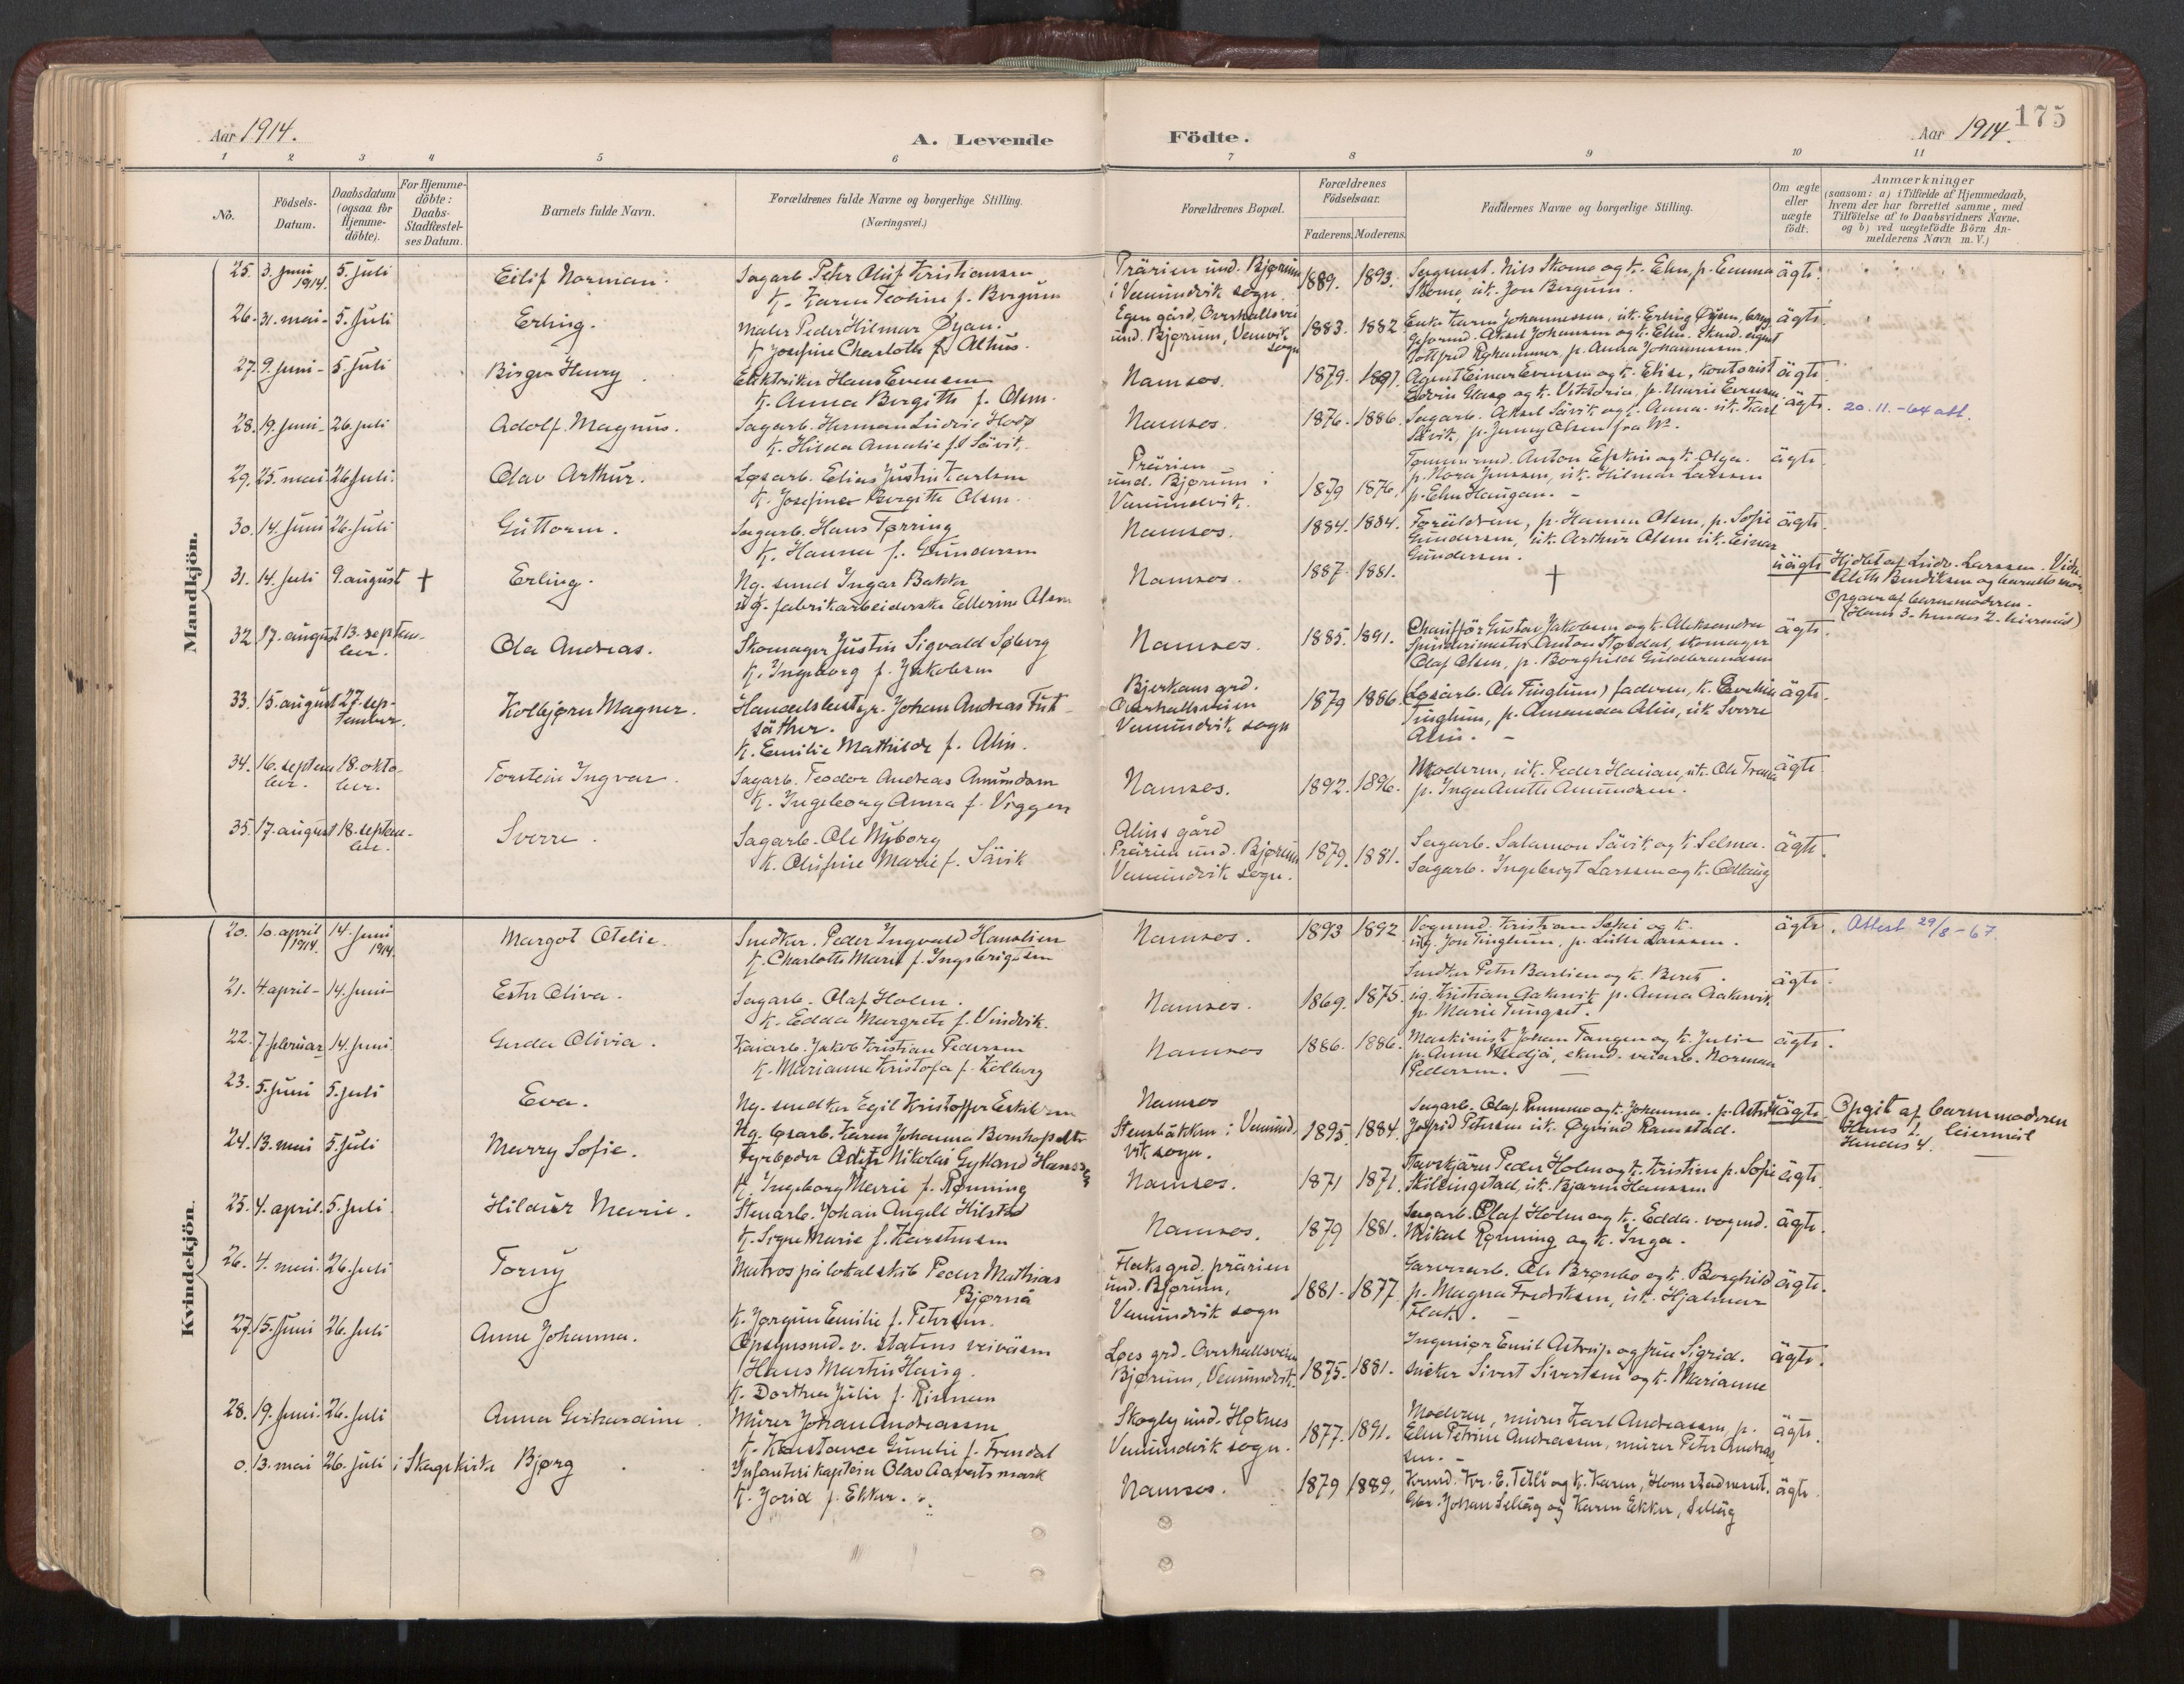 175
Aar 1914.
A. Levende Födte.
Aar 1914.
1 2 3 4 5 6 7 8 9 10 11
No.
Födsels-Datum.
Daabsdatum (ogsaa for Hjemme-döbte).
For Hjemme-döbte: Daabs-Stadfæstel-ses Datum.
Barnets fulde Navn.
Forældrenes fulde Navne og borgerlige Stilling. (Næringsvei.)
Forældrenes Bopæl.
Forældrenes Födselsaar.
Faderens. Moderens.
Faddernes Navne og borgerlige Stilling.
Om ægte eller uægte födt.
Anmærkninger
(saasom: a) i Tilfælde af Hjemmedaab,
hvem der har forrettet samme, med
Tilföielse af to Daabsvidners Navne,
og b) ved uægtefödte Börn An-
melderens Navn m. V.)
Mandkjön.
25. 3. juni 1914. 5. juli Eilif Norman. Sagarb. Peter Oluf Kristiansen
k. Karen Teoline f. Bergum
Prärien und. Bjørum
i Vemundvik sogn. 1889. 1893.
Nils Skomo og k. Elen, p. Emma
Skomo, uk. Jon Bergum. ägte.
26. 31. mai 5. juli Erling. Maler Peder Hilmar Øyan.
k. Josefine Charlotte f. Alhus.
Egen gård, Overhallsvei
und. Bjørum, Vemvik
sogn 1883. 1882
Enke Karen Johannessen, uk. Erling Øyen,
Aksel Johansen og k. Elen.
p. Anna Johannessen. ägte.
27. 9. juni 5. juli Birger Henry. Elektriker Hans Evensen
k. Anna Bergitte f. Olsen.
Namsos. 1879. 1891.
Agent Einar Evensen og k. Elise, kontorist
Edvin Glasø og k. Viktoria, p. Marie Evensen. ägte.
28. 19. juni 26. juli Adolf Magnus. Sagarb. Herman Ludvie
k. Hilda Amalie f. Sävik.
Namsos. 1876. 1886.
Sagarb. Aksel Sävik og k. Anna. uk. Karl
Sävik, p. Jenny Olsen fra Ns. ägte. 20.11.-64 att.
29. 25. mai 26 juli. Olav Arthur. Løsarb. Elias Justin Karlsen
k. Josefine Bergitte Olsen.
Prärien
und. Bjørum i
Vemundvik. 1879 1876.
Tømmermd. Anton Espkin og k. Olga.
p. Nora Jenssen, uk. Hilmar Larssen
p. Elen Haugan. ägte.
30. 14. juni 26. juli Guttorm. Sagarb. Hans Tørring
k. Hanna f. Gundersen
Namsos. 1884. 1884.
Foräldrene, p. Hanna Olsen, p. Sofie
Gundersen, uk. Arthur Olsen uk. Einar
Gundersen. ägte.
31. 14. juli 9. august † Erling. Ug. smed Ingar Bakke
ug. fabrikarbeiderske Ellerine Olsen
Namsos. 1887. 1881. † uägte
Hjdbt af Ludv. Larssen. Vidn.
Aleth Bendiksen og barnets mor.
Opgave af barnemoderen.
(Hans 3. hendes 2. leiermål)
32. 17. august 13. septem-
ber. Ola Andreas. Skomager Justin Sigvald Søberg
k. Ingeborg f. Jakobsen
Namsos. 1885. 1891.
Chauffør Gustav Jakobsen og k. Aleksandra
Spinderimester Anton Størdal, skomager
Olaf Olsen, p. Borghild Guldbrandsen ägte.
33. 15. august 27. sep-
tember. Kolbjørn Magner. Handelsbestyr. Johan Andreas Fisk-
säther.
k. Emilie Mathilde f. Alin.
Bjerkans grd.
Overhallsveien
Vemundvik sogn 1879 1886.
(Løsarb. Ole Tinglum) faderen, k.
Tinglum, p. Amanda Alin, uk Sverre
Alin. ägte.
34. 16. septem
ber. 18. okto-
ber. Torstein Ingvar. Sagarb. Teodor Andreas Amundsen
k. Ingeborg Anna f. Viggen
Namsos. 1892. 1896.
Moderen, uk. Peder Hanan, uk. Ole Trana
p. Inga Anette Amundsen. ägte
35. 17. august 18. septem-
ber. Sverre. Sagarb. Ole Nyborg
k. Olufine Marie f. Sävik
Alins gård
Prärien und. Bjørum
Vemundvik sogn. 1879. 1881.
Sagarb. Salamon Sävik og k. Selma.
Sagarb. Ingebrigt Larssen og k. Odlaug ägte.
Kvindekjön.
20. 10. april 1914. 14. juni 1914. Margot Otelie. Snedker. Peder Ingvald Hanslien
k. Charlotte Marie f. Ingebrigtsen
Namsos. 1893 1892
Vognmd. Kristian og k.
ug. Jon Tinglum, p. Lulle Larssen. ägte. Attest 29/8-67.
21. 4. april 14. juni Ester Oliva. Sagarb. Olaf Holm.
k. Edda Margrete f. Vindvik.
Namsos. 1869. 1875.
Snedker Peter Barlien og k. Beret.
ug. Kristian Aakervik p. Anna Aakervik
p. Marie Tungset. ägte.
22. 7. februar 14. juni Gerda Olivia. Kaiarb. Jakob Kristian Pedersen
k. Marianne Kristofa f. Kolberg
Namsos 1886. 1886.
Maskinist Johan Tangen og k. Julie
p. Anne, ekmd. veiarb. Norman
Pedersen. ägte.
23. 5. juni 5. juli Eva. Ug. snedker Egil Kristoffer Eriksen
Ug. løsarb. Karen Johanna Bernhofsdtr
Namsos
Stensbäkken i Vemund-
vik sogn. 1895. 1884.
Sagarb. Olaf Rummo og k. Johanna. p. Astrid
Jofrid Petersen uk. Øyvind Ramstad. uägte.
Opgit af barnemoderen
Hans 1. leiermål
Hendes 4.
24. 13. mai 5. juli Merry Sofie. Fyrbøder Adolf Nikolai Gylland Hanssen
k. Ingeborg Merie f. Rønning
Namsos. 1871 1871.
Peder Holm og k. Kristine p. Sofie
Skilsingstad, uk. Bjarne Hanssen ägte.
25. 4. april. 5. juli Hildur Merie. Stenarb. Johan Angell Hilstad
k. Signe Marie f. Karstensen
Namsos. 1879 1881.
Sagarb. Olaf Holm og k. Edda. vognmd.
Mikal Rønning og k. Inga. ägte.
26. 4. mai. 26. juli Torny Matros på lokalskib Peder Mathias
Bjørnå
k. Jørgine Emilie f. Petersen.
Flaks grd. prärien
und. Bjørum,
Vemundvik sogn 1881. 1877.
Garverarb. Ole Brønbo og k. Borghild
p. Magna Fredriksen, uk. Hjalmar
Flak. ägte.
27. 15. juni 26. juli Anne Johanna. Opsynsmd. v. statens veiväsen
Hans Martin Haug.
k. Dorthea Julie f. Rinnan
Løes grd. Overhallsveien
Bjørum, Vemundvik. 1875. 1881.
Ingeniør Emil Astrup og frue Sigrid.
Sivert Sivertsen og k. Marianne ägte.
28. 19. juni. 26. juli Anna Gerhardine. Murer Johan Andreassen
k. Konstance Gunelie f. Trendal
Skogly und. Høknes
Vemundvik sogn. 1877. 1891.
Moderen, murer Karl Andreassen, p.
Elen Petrine Andreassen, murer Peter Andreas
sen. ägte.
0. 13. mai 26. juli i Skagekirke Bjørg Infanterikaptein Olav Aavatsmark
k. Jorid f. Ekker.
Namsos. 1879 1889.
Krmd. Kr. E. Tetli og k. Karen, Homstadneset.
Gbr. Johan Selläg og Karen Ekker, Selläg ägte.